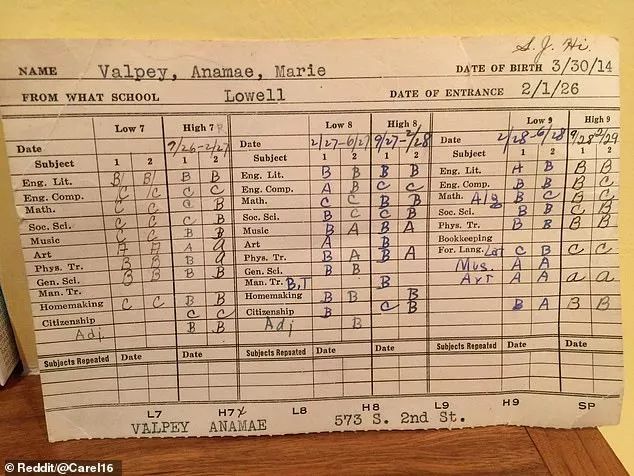 S. J. Hi.
NAME Valpey, Anamae, Marie DATE OF BIRTH 3/30/14
FROM WHAT SCHOOL Lowell DATE OF ENTRANCE 2/1/26
Low 7 High 7 Low 8 High 8 Low 9 High 9
Date 9/26-2/27 Date 2/27-6/27 9/27-2/28 Date 2/28-6/28 9/28 2/29
Subject 1 2 1 2 Subject 1 2 1 2 Subject 1 2 1 2
Eng. Lit. B B B B Eng. Lit. B B B B Eng. Lit. A B B B
Eng. Comp. C C C B Eng. Comp. A B C C Eng. Comp. B B B C
Math. C C Math. C C B B Math. Alg B C C B
Soc. Sci. C C C B Soc. Sci. B C C B Soc. Sci. B B C B
Music C C B B Music B A B A Phys. Tr. B B B B
Art A a Art A B Bookkeeping
Phys. Tr. B B Phys. Tr. B A B A For. Lang. Lat C B C C
Gen. Sci. B B Gen. Sci. B B Mus. A A
Man. Tr. Man. Tr. B,T B Art A A a a
Homemaking C C B B Homemaking B B B
Citizenship C C Citizenship B C B B A B B
Adj B B Adj B
Subjects Repeated Date Date Subjects Repeated Date Date Subjects Repeated Date Date
L7 H7 L8 H8 L9 H9 SP
VALPEY ANAMAE 573 S. 2nd St.
© Reddit/@Carel16